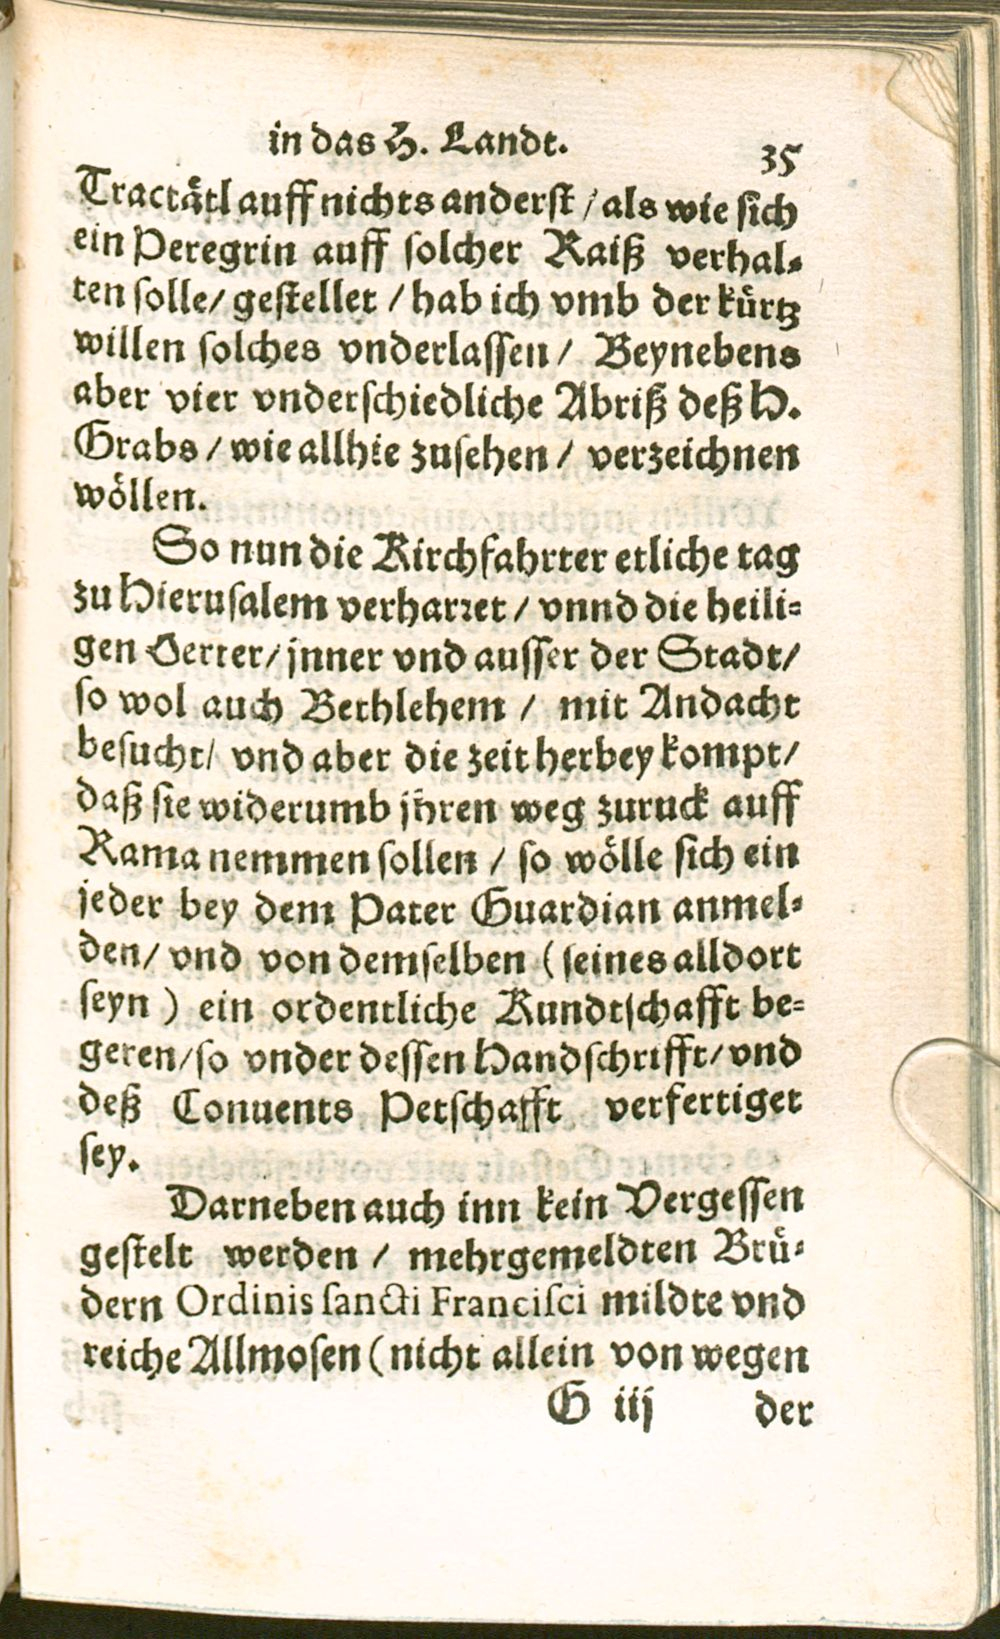 in das H. Landt.
35
Tractaͤtl auff nichts anderst / als wie sich
ein Peregrin auff solcher Raiß verhal-
ten solle / gestellet / hab ich vmb der kuͤrtz
willen solches vnderlassen / Beynebens
aber vier vnderschiedliche Abriß deß H.
Grabs / wie allhie zusehen / verzeichnen
woͤllen.
So nun die Kirchfahrter etliche tag
zu Hierusalem verharret / vnnd die heili-
gen Oerter / jnner vnd ausser der Stadt /
so wol auch Bethlehem / mit Andacht
besucht / vnd aber die zeit herbey kompt /
daß sie widerumb jhren weg zuruck auff
Rama nemmen sollen / so woͤlle sich ein
jeder bey dem Pater Guardian anmel-
den / vnd von demselben (seines alldort
seyn) ein ordentliche Kundtschafft be-
geren / so vnder dessen Handschrifft / vnd
deß Conuents Petschafft verfertiget
sey.
Darneben auch inn kein Vergessen
gestelt werden / mehrgemeldten Bruͤ-
dern Ordinis sancti Francisci mildte vnd
reiche Allmosen (nicht allein von wegen
G iij
der